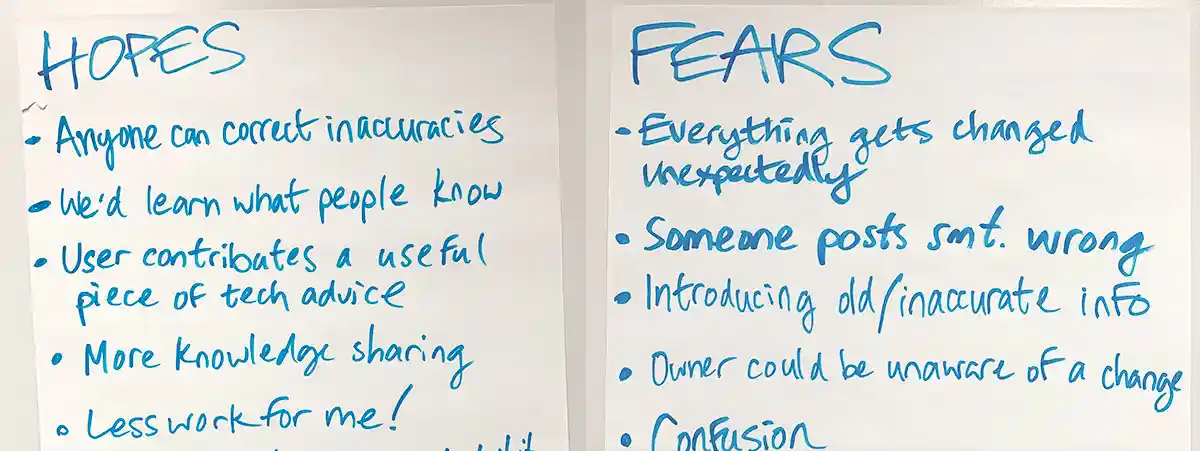 HOPES
• Anyone can correct inaccuracies
• We'd learn what people know
• User contributes a useful
piece of tech advice
• More knowledge sharing
• Less work for me!
FEARS
• Everything gets changed
unexpectedly
• Someone posts smt. wrong
• Introducing old/inaccurate info
• Owner could be unaware of a change
• Confusion